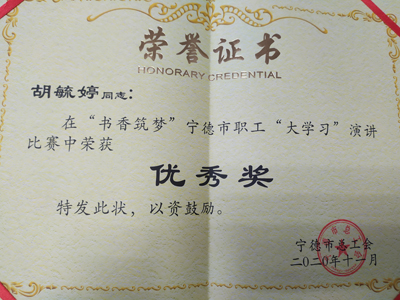 荣誉证书
HONORARY CREDENTIAL
胡毓婷同志：
在“书香筑梦”宁德市职工“大学习”演讲
比赛中荣获
优秀奖
特发此状，以资鼓励。
宁德市总工会
二〇二〇年十一月